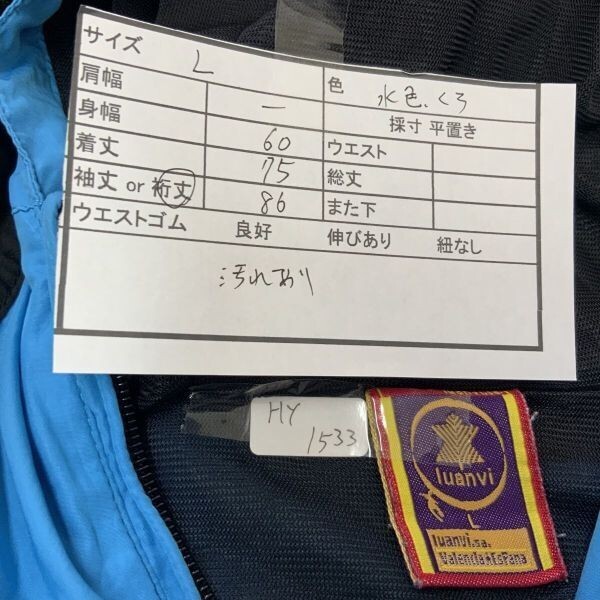 サイズ L 色 水色.くろ
肩幅 — 採寸 平置き
身幅 60 ウエスト
着丈 75 総丈
袖丈 or 裄丈 86 また下
ウエストゴム 良好 伸びあり 紐なし
汚れあり
HY
1533
luanvi
L
luanvi.s.a.
Valencia★España